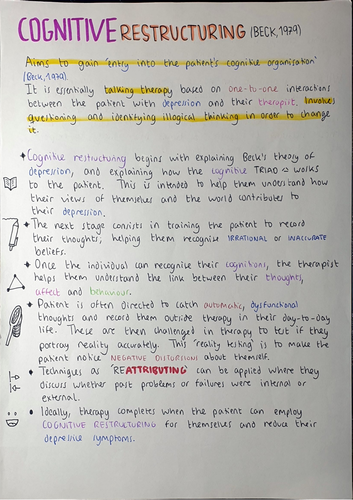 COGNITIVE RESTRUCTURING (BECK, 1979)
Aims to gain 'entry into the patient's cognitive organisation'
(Beck, 1979).
It is essentially talking therapy based on one-to-one interactions
between the patient with depression and their therapist. Involves
questioning and identifying illogical thinking in order to change
it.
Cognitive restructuring begins with explaining Beck's theory of
depression, and explaining how the cognitive TRIAD works
to the patient. This is intended to help them understand how
their views of themselves and the world contributes to
their depression.
The next stage consists in training the patient to record
their thoughts; helping them recognise IRRATIONAL or INACCURATE
beliefs.
Once the individual can recognise their cognitions, the therapist
helps them understand the link between their thoughts,
affect and behaviour.
Patient is often directed to catch automatic, dysfunctional
thoughts and record them outside therapy in their day-to-day
life. These are then challenged in therapy to test if they
portray reality accurately. This 'reality testing' is to make the
patient notice NEGATIVE DISTORTIONS about themself.
Techniques as 'REATTRIBUTING' can be applied where they
discuss whether past problems or failures were internal or
external.
Ideally, therapy completes when the patient can employ
COGNITIVE RESTRUCTURING for themselves and reduce their
depressive symptoms.